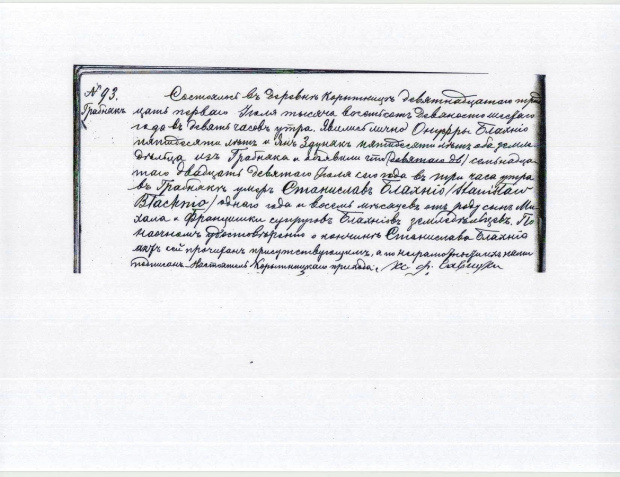 № 93.
Грабнякъ
Состоялось въ деревнѣ Корытницѣ девятнадцатаго трид
цать перваго Іюля тысяча восемьсотъ девяносто
года въ девять часовъ утра. Явились лично Онуфры Блахніо
пятьдесяти лѣтъ и Янъ Здунякъ пятьдесяти лѣтъ оба земле
дѣльца изъ Грабняка и объявили что семьнадца
таго двадцать девятаго Іюля сего года въ три часа утра
въ Грабнякѣ умеръ Станиславъ Блахніо /Stanisław
Błachnio/ одного года и восемь мѣсяцевъ отъ роду сынъ Ми
хала и Францишки супруговъ Блахніовъ земледѣльцевъ. По
наочномъ удостовѣреніи о кончинѣ Станислава Блахніо
актъ сей прочитанъ присутствующимъ, а по неграмотности ихъ нами
подписанъ. Настоятель Корытницкаго прихода